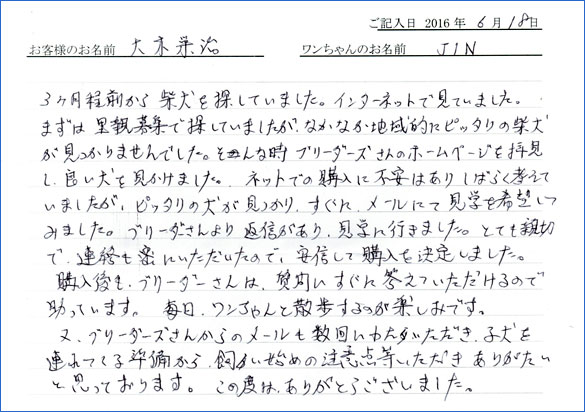 ご記入日 2016 年 6 月 18 日
お客様のお名前 大木栄治 ワンちゃんのお名前 JIN
3ヶ月程前から 柴犬を探していました。インターネットで見ていました。
まずは 里親募集で探していましたが、なかなか地域的にピッタリの柴犬
が見つかりませんでした。そんな時 ブリーダーズさんのホームページを拝見
し、良い犬を見かけました。ネットでの購入に不安はあり しばらく考えて
いましたが、ピッタリの犬が見つかり、すぐに メールにて見学を希望して
みました。ブリーダさんより 返信があり、見学に行きました。とても親切
で、連絡も密にいただいたので、安信して購入を決定しました。
購入後も、ブリーダーさんは、質問に すぐに 答えていただけるので
助っています。 毎日、ワンちゃんと散歩するのが楽しみです。
又、ブリーダーズさんからのメールも数回にわたりいただき、子犬を
連れてくる準備から、飼い始めの注意点等いただき ありがたい
と思っております。 この度は、ありがとうございました。